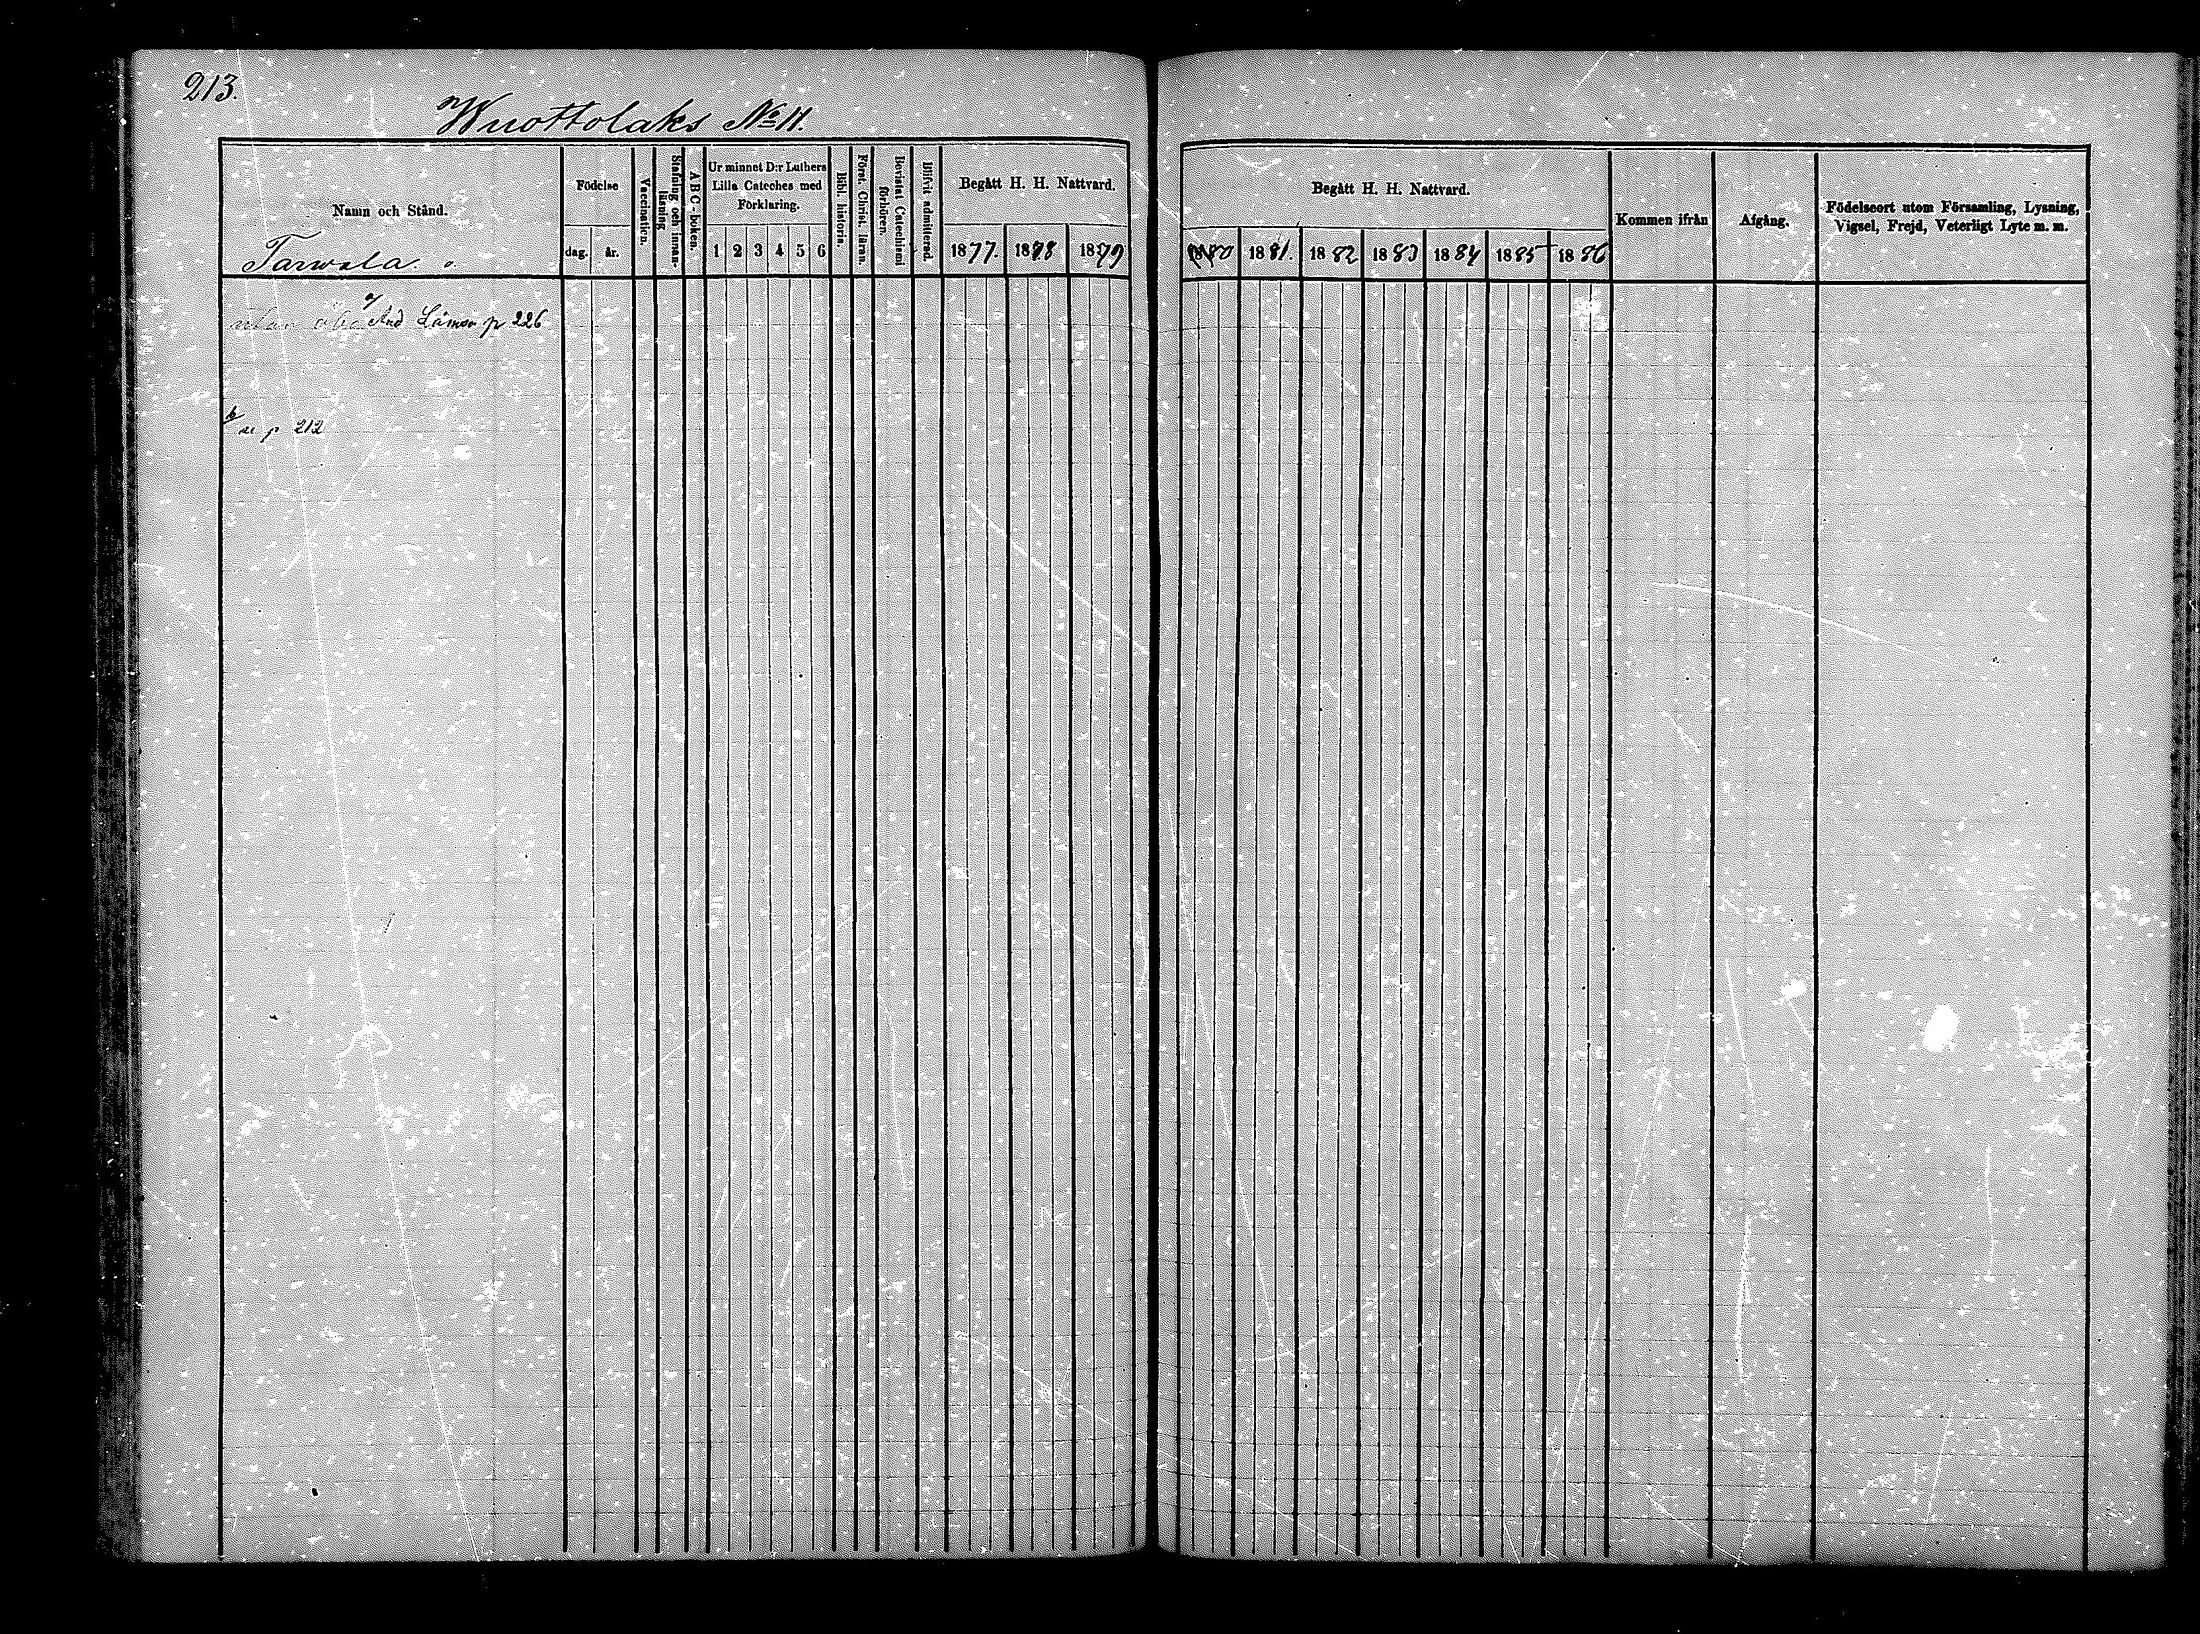 213.
Wuottolaks No 11.
Namn och Stånd.
Tarwala.
Födelse
dag. år.
Vaccination.
Stafning och innan-
läsning
A B C-boken.
Ur minnet D:r Luthers
Lilla Cateches med
Förklaring.
1 2 3 4 5 6
Bibl. historia.
Först. Christ. läran.
Bevistat Catechismi
förhören.
Blifvit admitterad.
Begått H. H. Nattvard.
1877. 1878 1879
Begått H. H. Nattvard.
1880 1881. 1882 1883 1884 1885 1886
Kommen ifrån
Afgång.
Födelseort utom Församling, Lysning,
Vigsel, Frejd, Veterligt Lyte m. m.
utan And p 226
b
se p 212